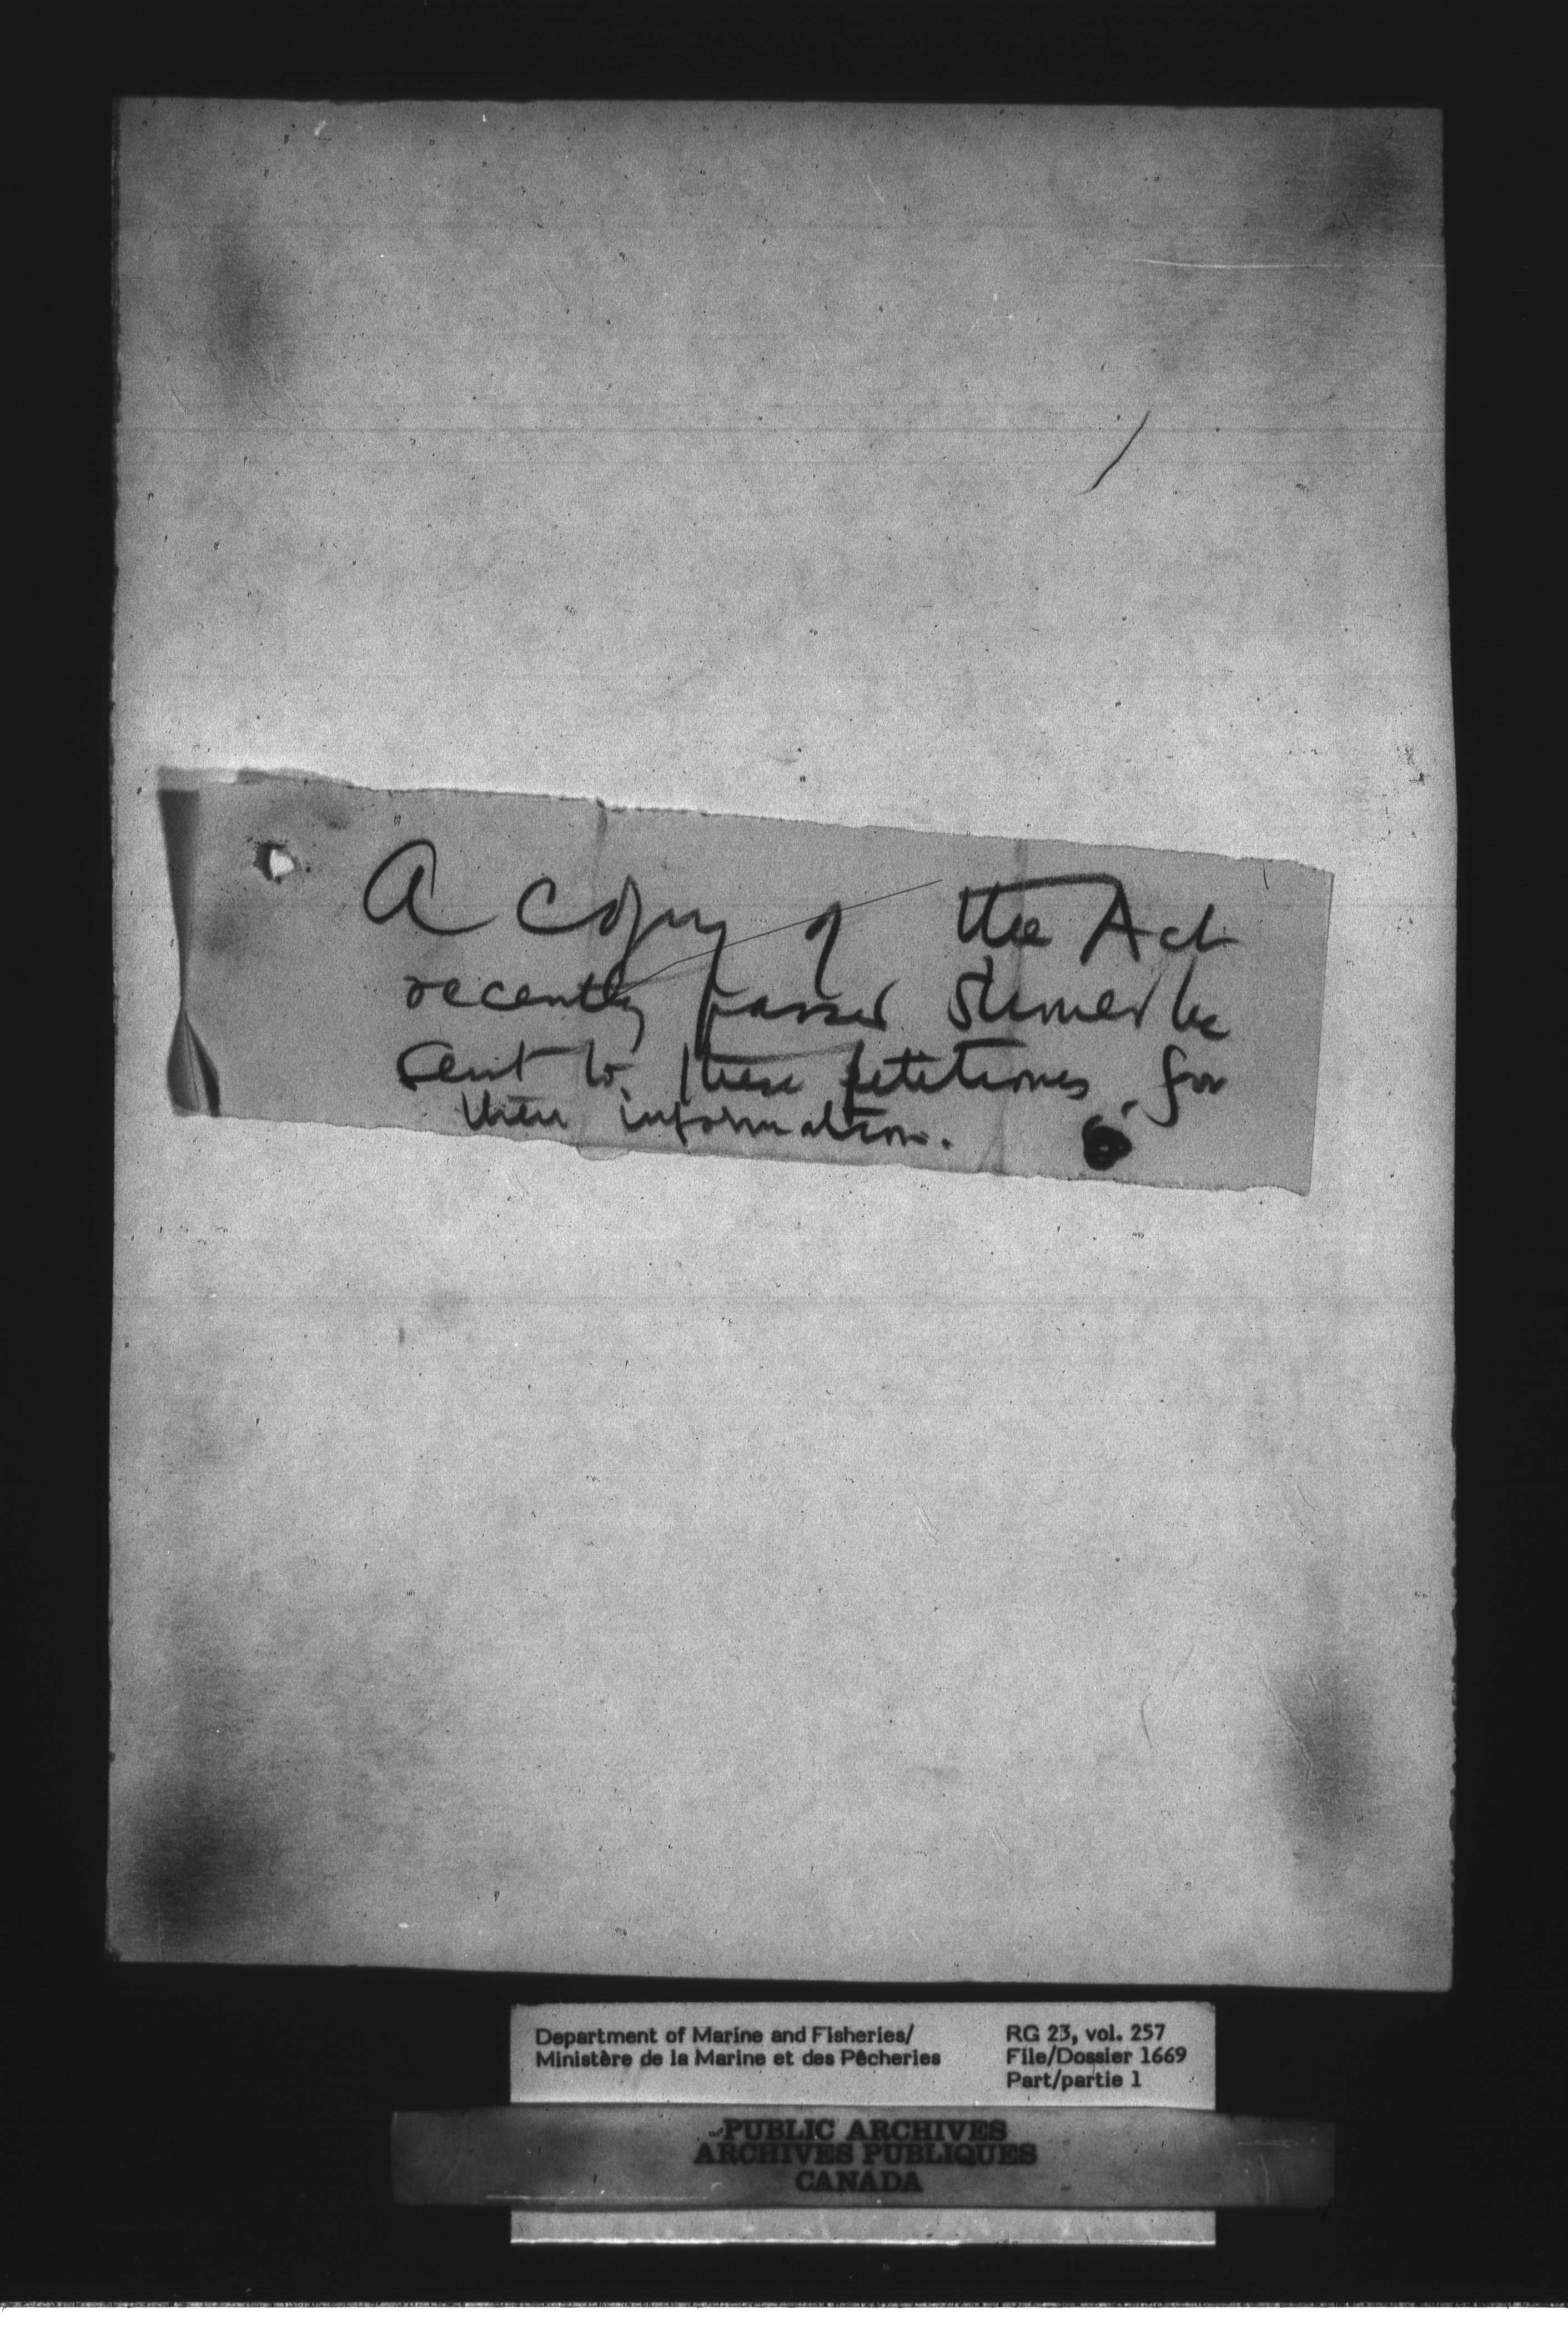 A copy of the Act
recently passed should be
sent to these petitioners for
their information.
Department of Marine and Fisheries/
Ministère de la Marine et des Pêcheries
RG 23, vol. 257
File/Dossier 1669
Part/partie 1
PUBLIC ARCHIVES
ARCHIVES PUBLIQUES
CANADA